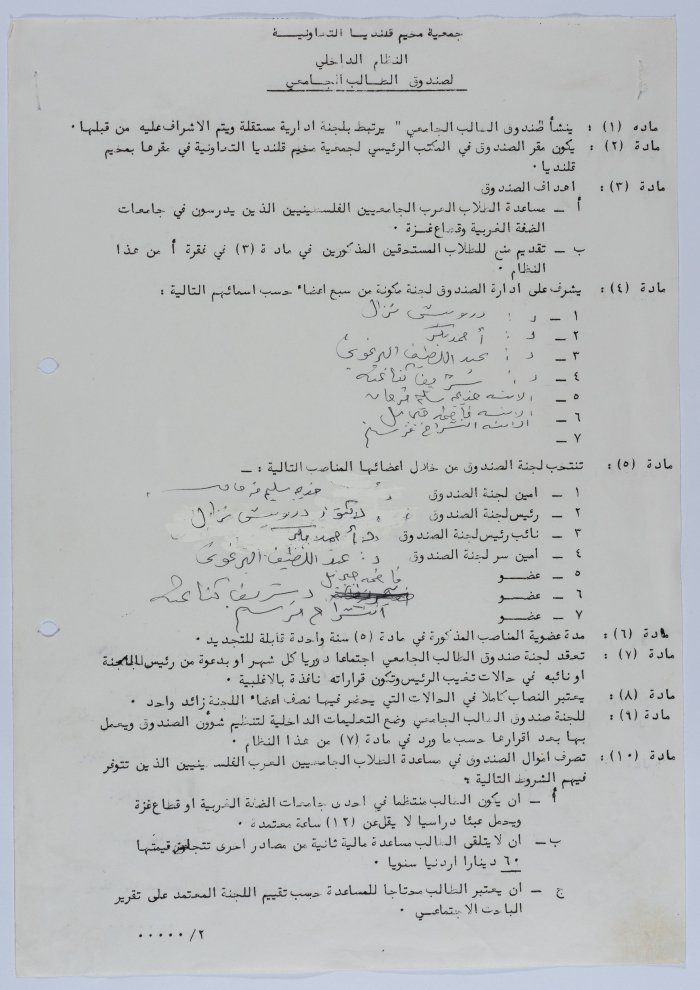 جمعية مخيم قلنديا التعاونية
النظام الداخلي
لصندوق الطالب الجامعي
ماده (١) : ينشأ صندوق الطالب الجامعي " يرتبط بلجنة ادارية مستقلة ويتم الاشراف عليه من قبلها .
مادة (٢) : يكون مقر الصندوق في المكتب الرئيسي لجمعية مخيم قلنديا التعاونية في مقرها بمخيم
قلنديا .
مادة (٣) : اهداف الصندوق
أ – مساعدة الطلاب العرب الجامعيين الفلسطينيين الذين يدرسون في جامعات
الضفة الغربية وقطاع غزة .
ب – تقديم منح للطلاب المستحقين المذكورين في مادة (٣) في فقرة أ من هذا
النظام .
مادة (٤) : يشرف على ادارة الصندوق لجنة مكونة من سبع اعضاء حسب اسمائهم التالية :
١ – د : درويش نزال
٢ – د : أحمد بكر
٣ – د : عبد اللطيف البرغوثي
٤ – د : شريف كناعنة
٥ – الانسه خديجه سليم فرحان
٦ – الانسه فاطمه جبريل
٧ – الانسه انشراح
مادة (٥) : تنتخب لجنة الصندوق من خلال اعضائها المناصب التالية : –
١ – امين لجنة الصندوق خديجه سليم فرحان
٢ – رئيس لجنة الصندوق لدكتور درويش نزال
٣ – نائب رئيس لجنة الصندوق د أحمد بكر
٤ – امين سر لجنة الصندوق د : عبد اللطيف البرغوثي
٥ – عضو فاطمه جبريل
٦ – عضو د شريف كناعنة
٧ – عضو انشراح
مادة (٦) : مدة عضوية المناصب المذكورة في مادة (٥) سنة واحدة قابلة للتجديد .
مادة (٧) : تعقد لجنة صندوق الطالب الجامعي اجتماعا دوريا كل شهر او بدعوة من رئيس اللجنة
او نائبه في حالات تغيب الرئيس وتكون قراراته نافذة بالاغلبية .
مادة (٨) : يعتبر النصاب كاملا في الحالات التي يحضر فيها نصف اعضاء اللجنة زائد واحد .
مادة (٩) : للجنة صندوق الطالب الجامعي وضع التعليمات الداخلية لتنظيم شوون الصندوق ويعمل
بها بعد اقرارها حسب ما ورد في مادة (٧) من هذا النظام .
مادة (١٠) : تصرف اموال الصندوق في مساعدة الطلاب الجامعيين العرب الفلسطينيين الذين تتوفر
فيهم الشروط التالية :
أ – ان يكون الطالب منتظما في احدى جامعات الضفة الغربية او قطاع غزة
ويحمل عبئا دراسيا لا يقل عن (١٢) ساعة معتمدة .
ب – ان لا يتلقى الطالب مساعدة مالية ثانية من مصادر اخرى تتجاوز قيمتها
٦٠ دينارا اردنيا سنويا .
ج – ان يعتبر الطالب محتاجا للمساعدة حسب تقييم اللجنة المعتمد على تقرير
الباحث الاجتماعي .
٢/ ٠٠٠٠٠